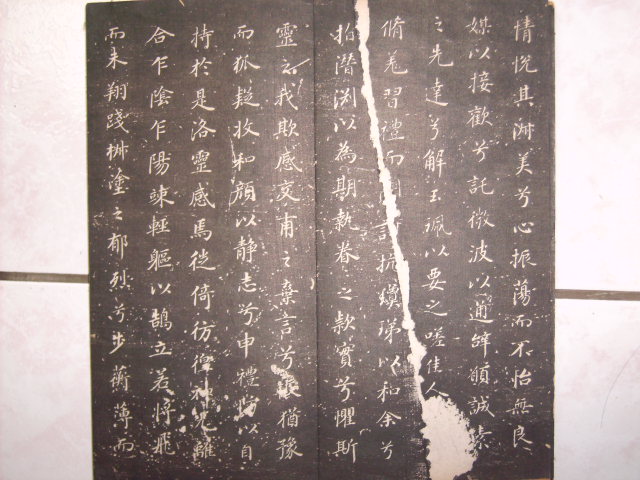 情悅其淑美兮心振蕩而不怡無良
媒以接歡兮託微波以通辭願誠素
之先達兮解玉珮以要之嗟佳人
脩羌習禮而詩抗瓊珶以和余兮
指潛渊以為期執眷〻之款實兮懼斯
靈之我欺感交甫之棄言兮悵猶豫
而狐疑收和顏以静志兮申禮防以自
持於是洛靈感焉徙倚彷徨神光離
合乍陰乍陽竦輕軀以鵠立若將飛
而未翔踐椒塗之郁烈兮步蘅薄而